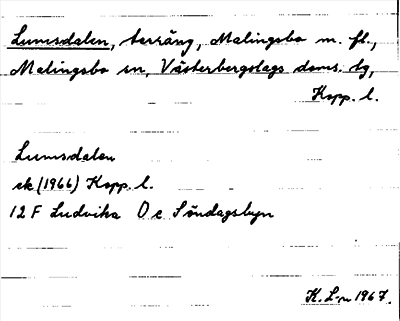 Lumsdalen, terräng, Malingsbo m. fl.,
Malingsbo sn, Västerbergslags doms. tg,
Kopp. l.
Lumsdalen
ek (1966) Kopp. l.
12 F Ludvika O c Söndagsbyn
K. L-n 1967.